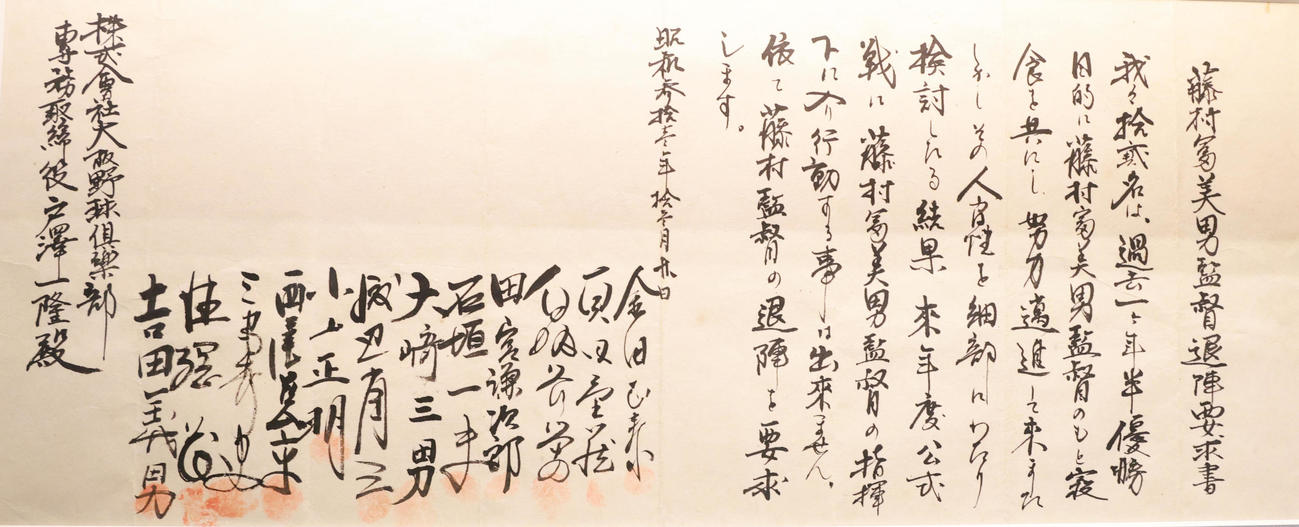 藤村富美男監督退陣要求書
我々拾貳名は、過去一ヶ年半優勝
目的に藤村富美男監督のもと寝
食を共にし努力邁進して来ました
しかしその人間性を細部にわたり
検討したる結果来年度公式
戦に藤村富美男監督の指揮
下に入り行動する事は出來ません。
依て藤村監督の退陣を要求
します。
昭和参拾壱年拾壱月廿日
金田正泰
真田重蔵
白坂長榮
田宮謙次郎
石垣一夫
大崎三男
渡辺省三
小山正明
西澤
三船
吉田義男
株式會社大阪野球倶樂部
專務取締役戸澤一隆殿